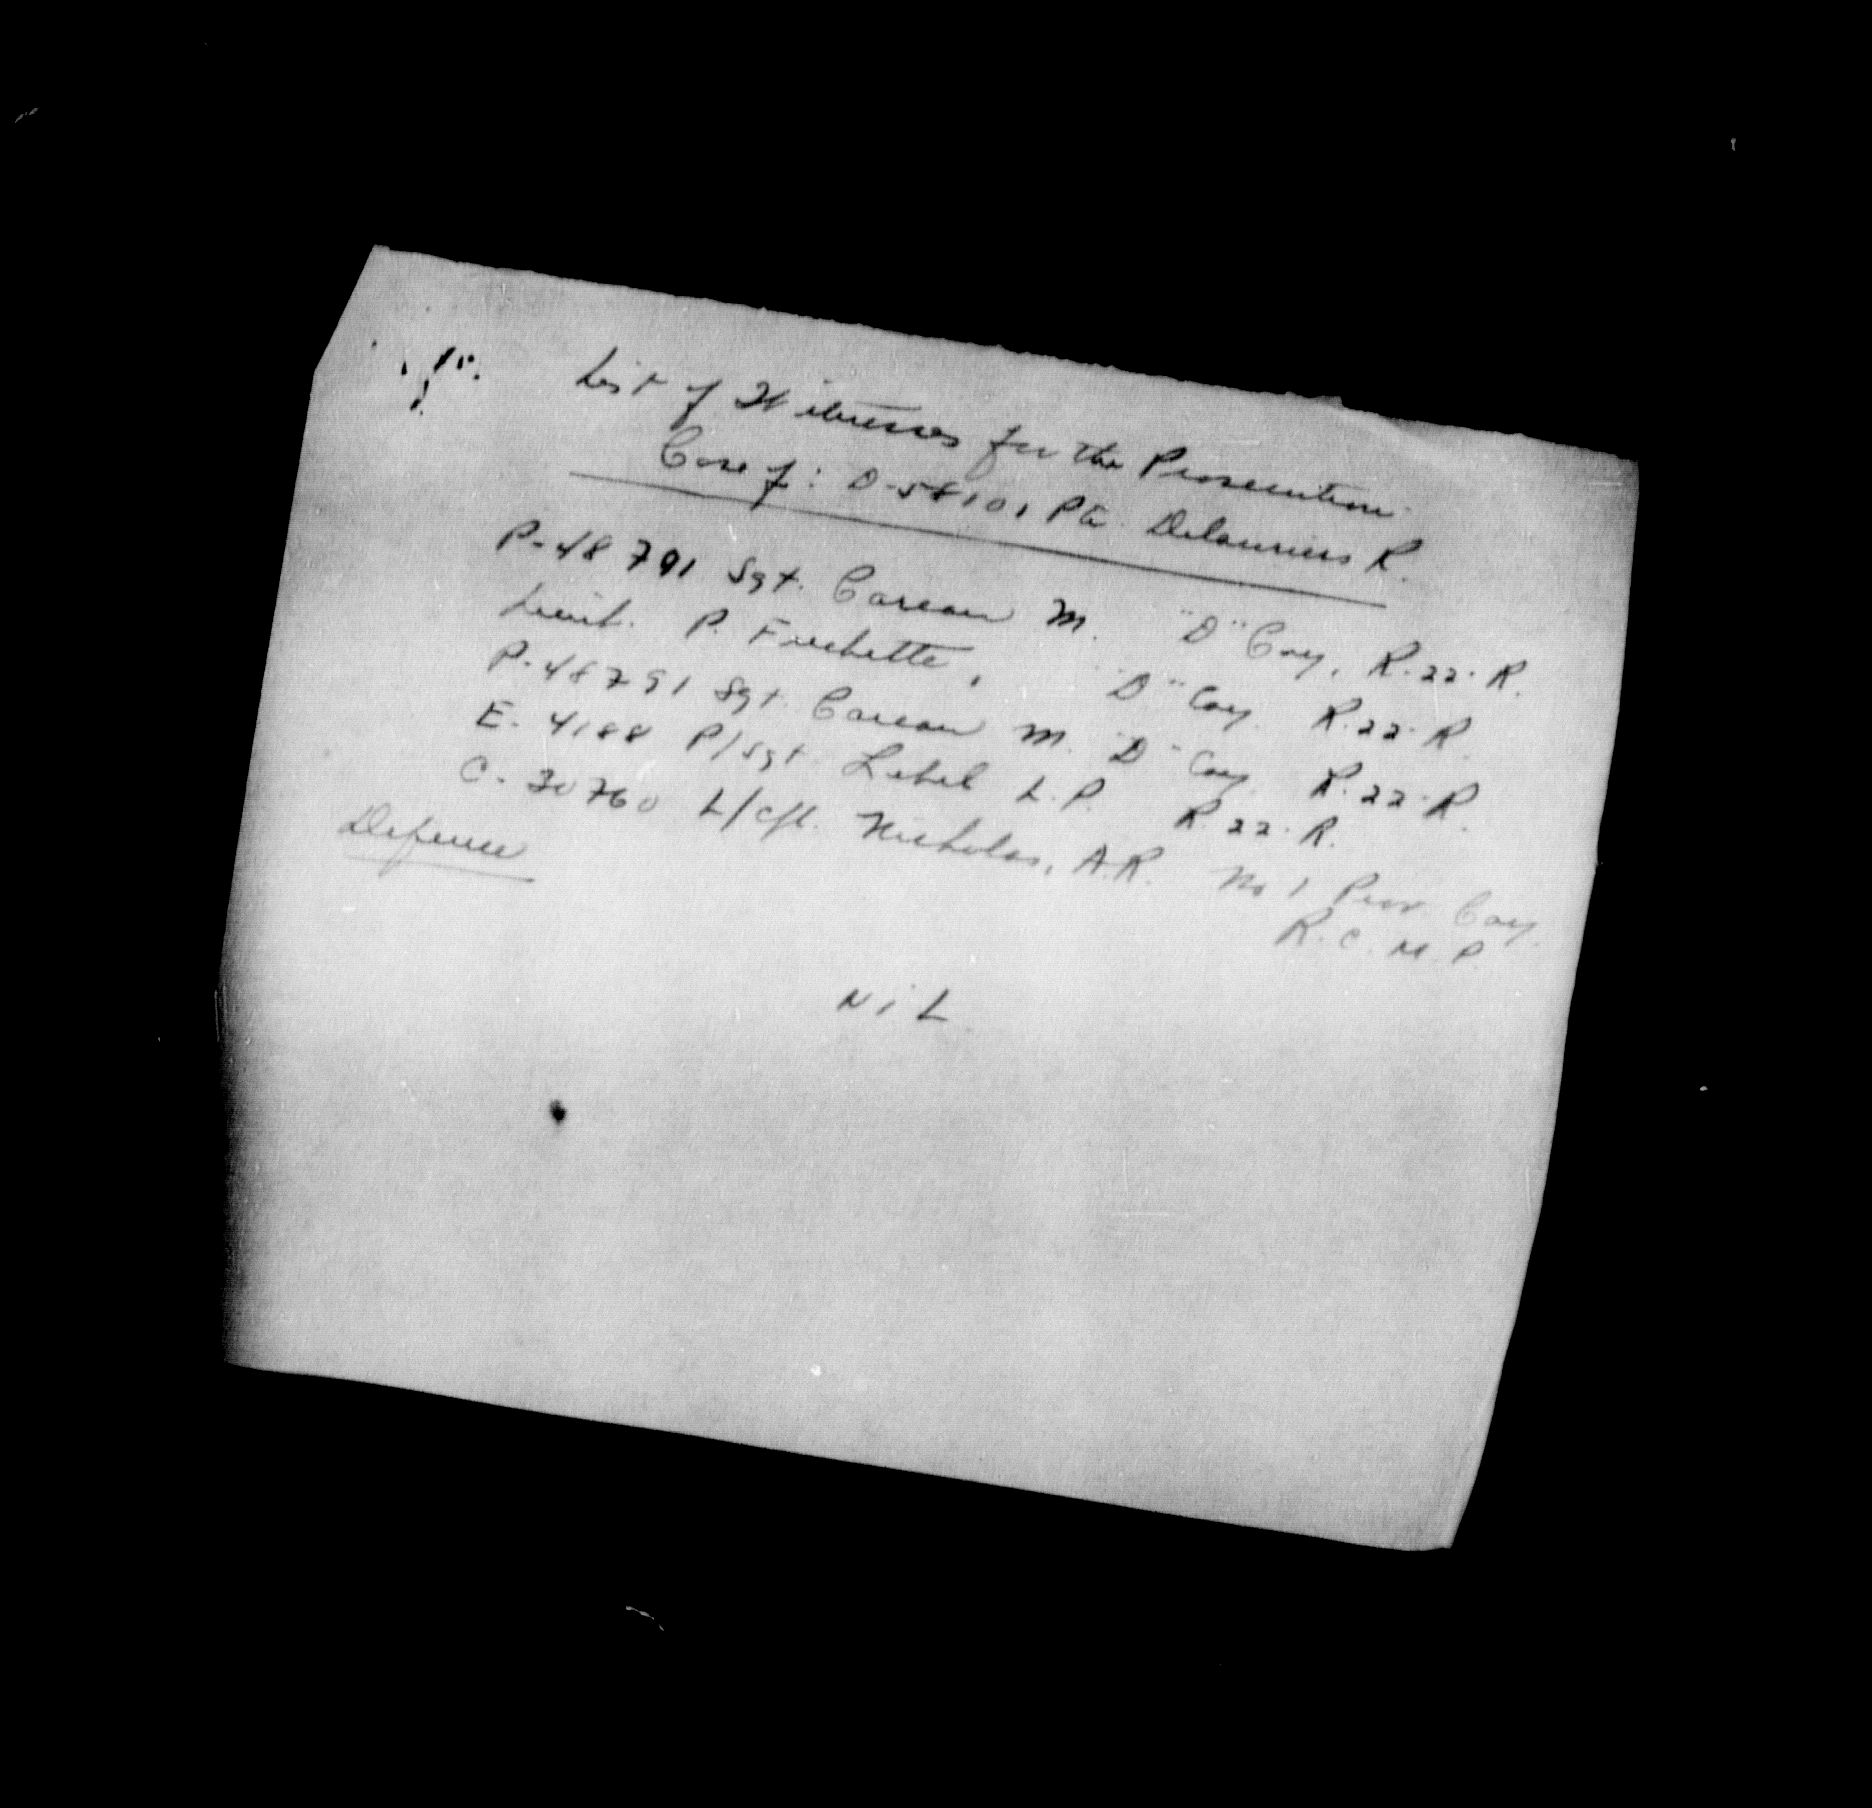 List of Witnesses for the Prosecution
Case of: D-58101 Pte Delauriers R.
P-48791 Sgt. Careau M. "D" Coy, R.22.R.
Lieut. P. Frechette, "D" Coy R.22.R.
P-48791 Sgt. Careau M. "D" Coy R.22.R.
E-4188 P/Sgt Lebel L.P. R.22.R.
C-30760 L/Cpl. Nicholas, A.R. No 1 Prov Coy.
R.C.M.P.
Defence
NiL